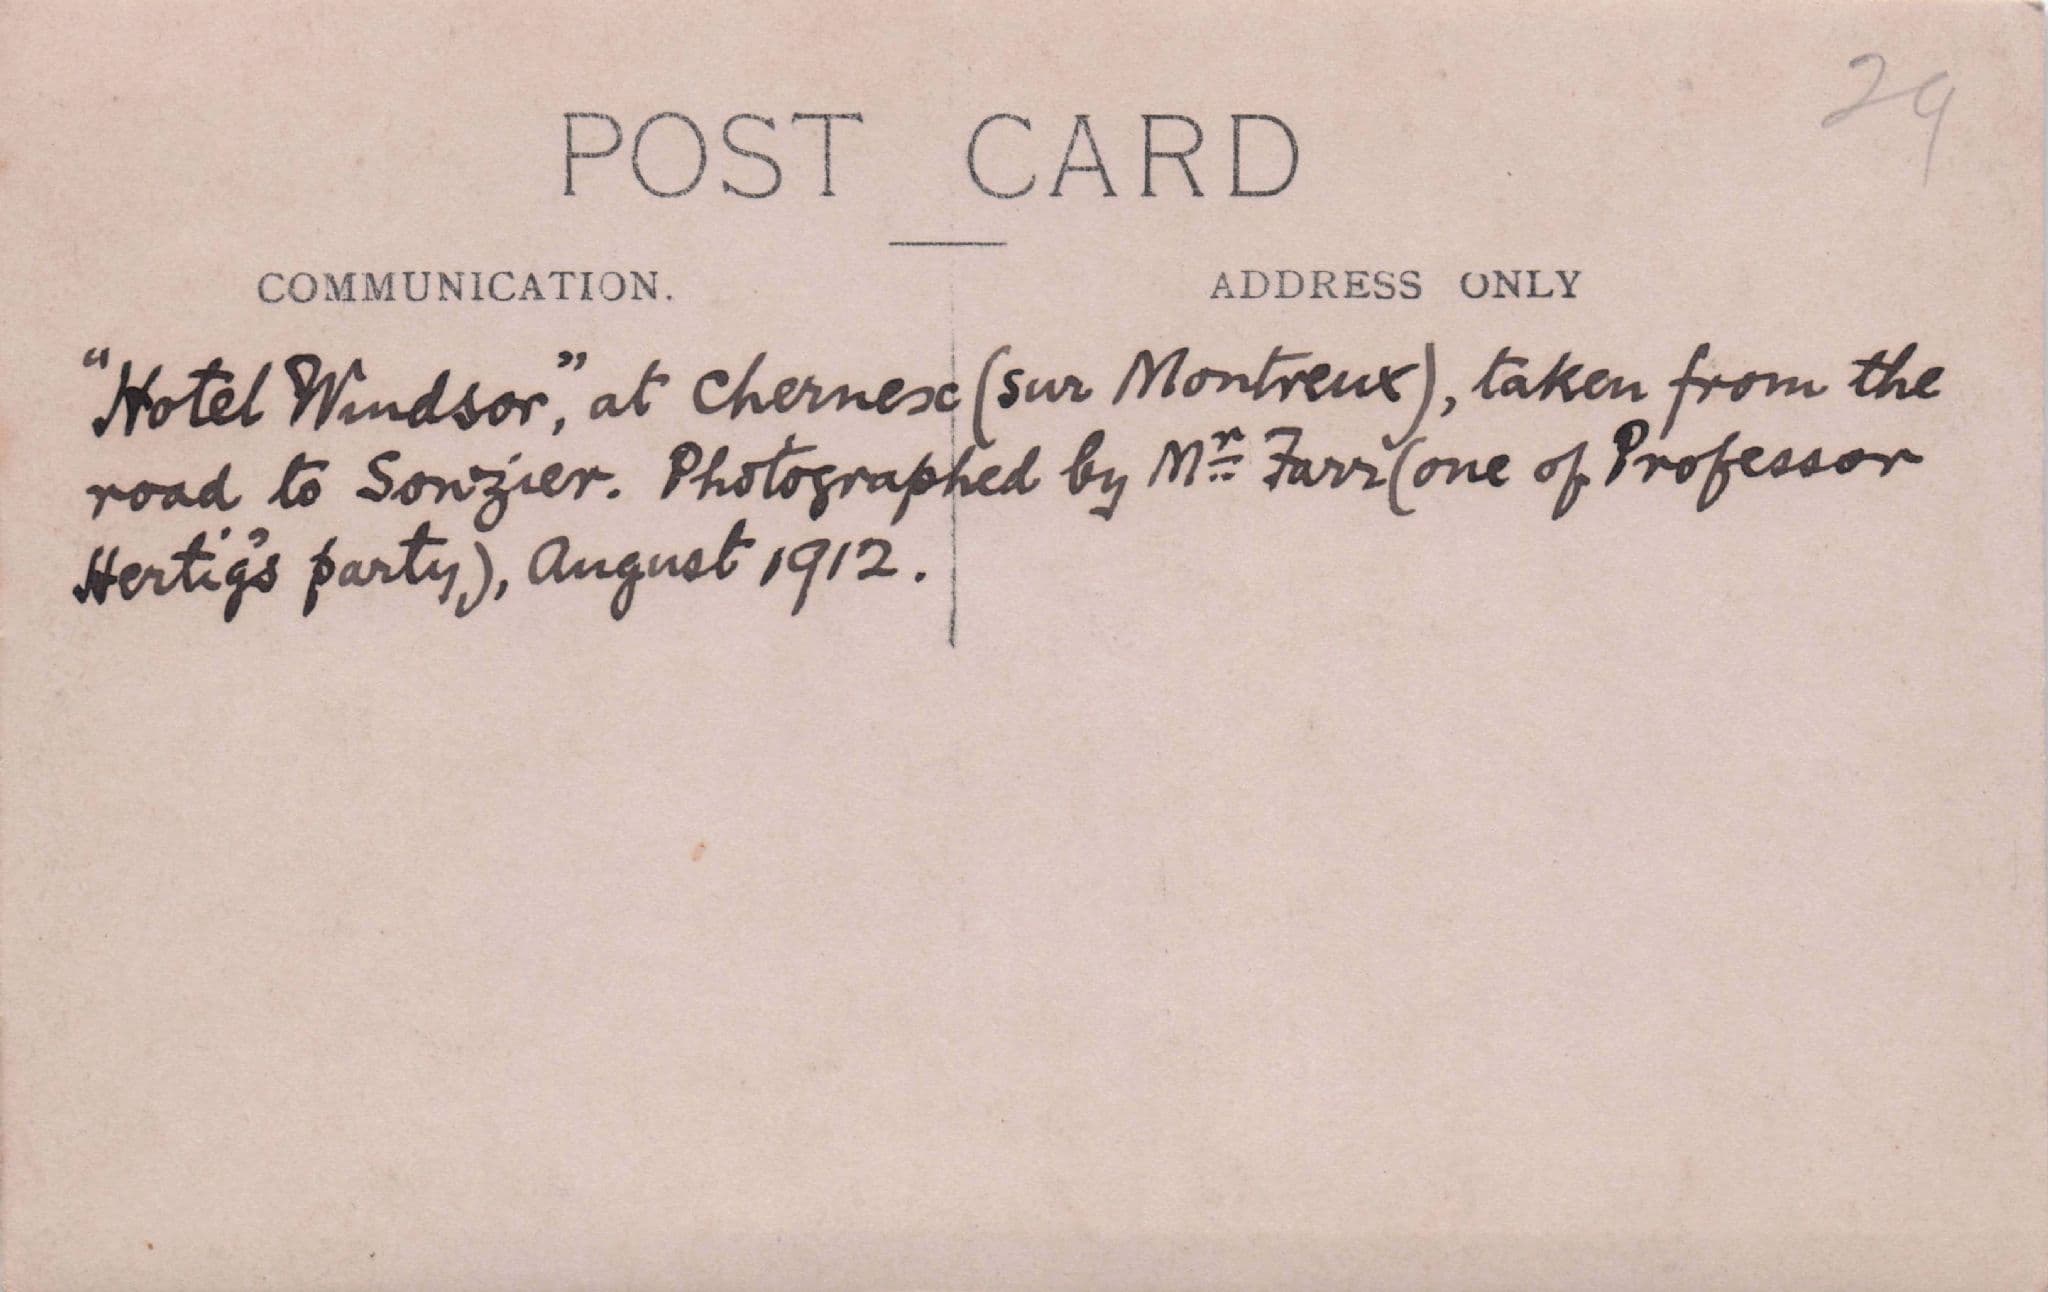 29
POST CARD
COMMUNICATION.
ADDRESS ONLY
"Hotel Windsor", at Chernex (sur Montreux), taken from the
road to Sonzier. Photographed by Mr Farr (one of Professor
Hertig's party), August 1912.